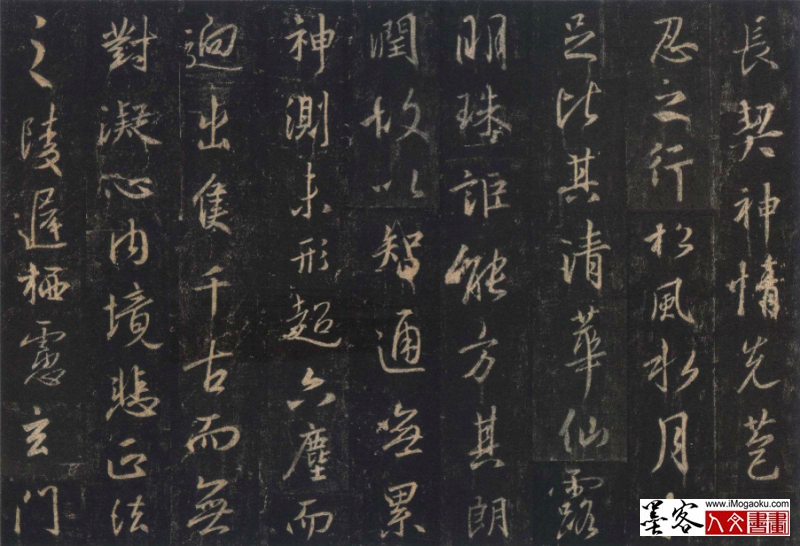 長契神情先苞
忍之行松風水月
足比其清華仙露
明珠詎能方其朗
潤故以智通無累
神測未形超六塵而
迥出隻千古而無
對凝心内境悲正法
之陵遲栖慮玄門
www.iMogaoku.com
墨客
人文書畫